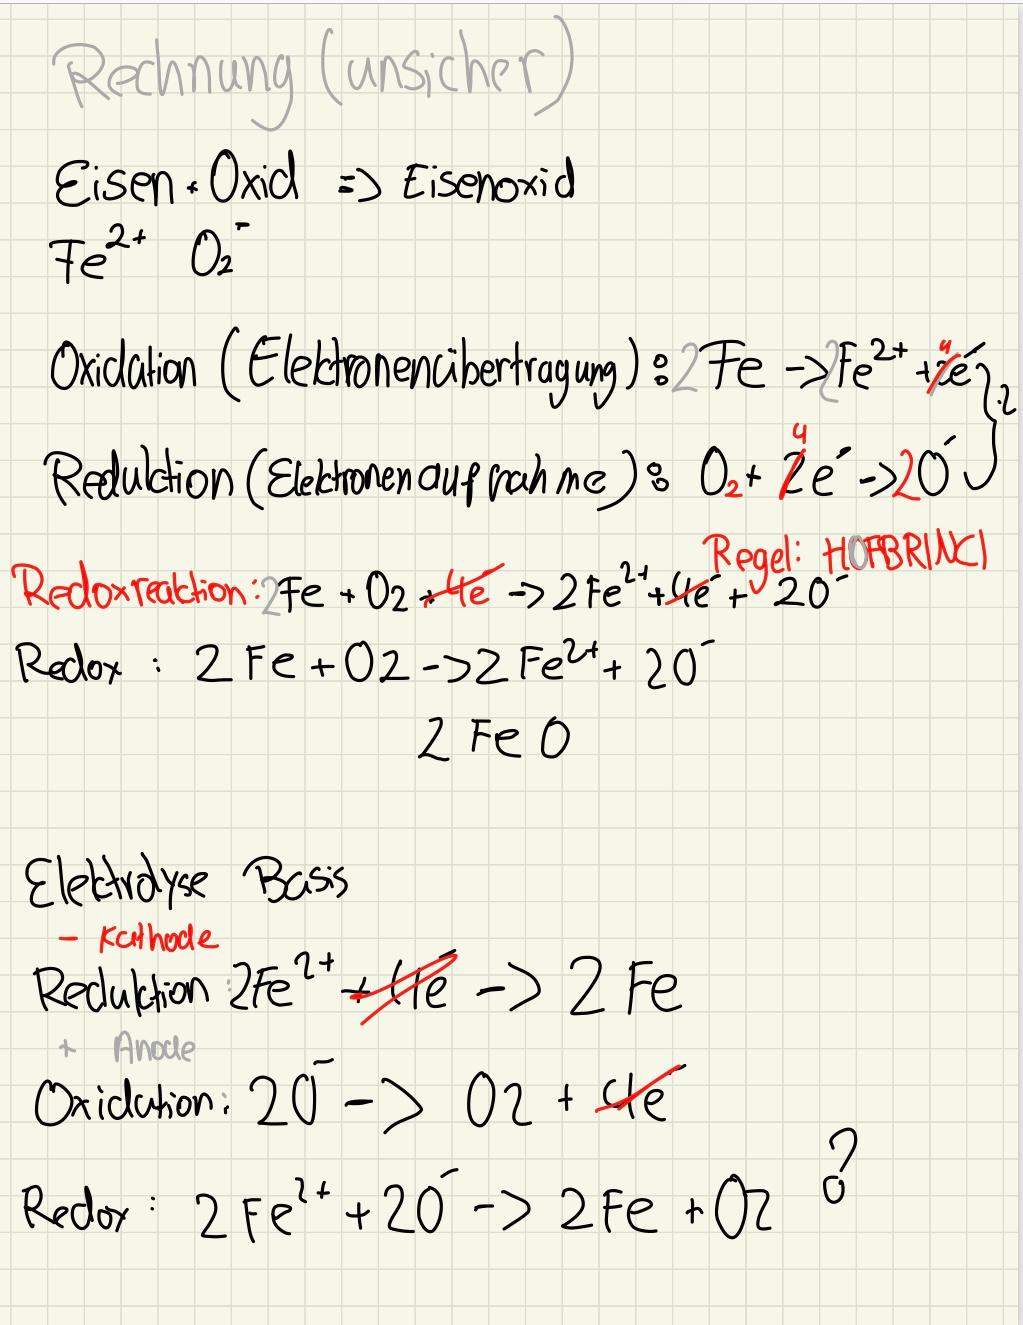 Rechnung (unsicher)
Eisen + Oxid => Eisenoxid
Fe²⁺ O₂⁻
Oxidation (Elektronenübertragung): 2 Fe -> 2 Fe²⁺ + 4 e⁻ } ·2
Reduktion (Elektronenaufnahme): O₂ + 4 2e⁻ -> 2O⁻
Regel: HOFBRINCl
Redoxreaktion: 2Fe + O₂ + 4e⁻ -> 2Fe²⁺ + 4e⁻ + 2O⁻
Redox : 2 Fe + O2 -> 2 Fe²⁺ + 2O⁻
2 FeO
Elektrolyse Basis
- Kathode
Reduktion : 2Fe²⁺ + 4e⁻ -> 2 Fe
+ Anode
Oxidation: 2O⁻ -> O2 + 4e⁻
Redox : 2 Fe²⁺ + 2O⁻ -> 2Fe + O2 ?